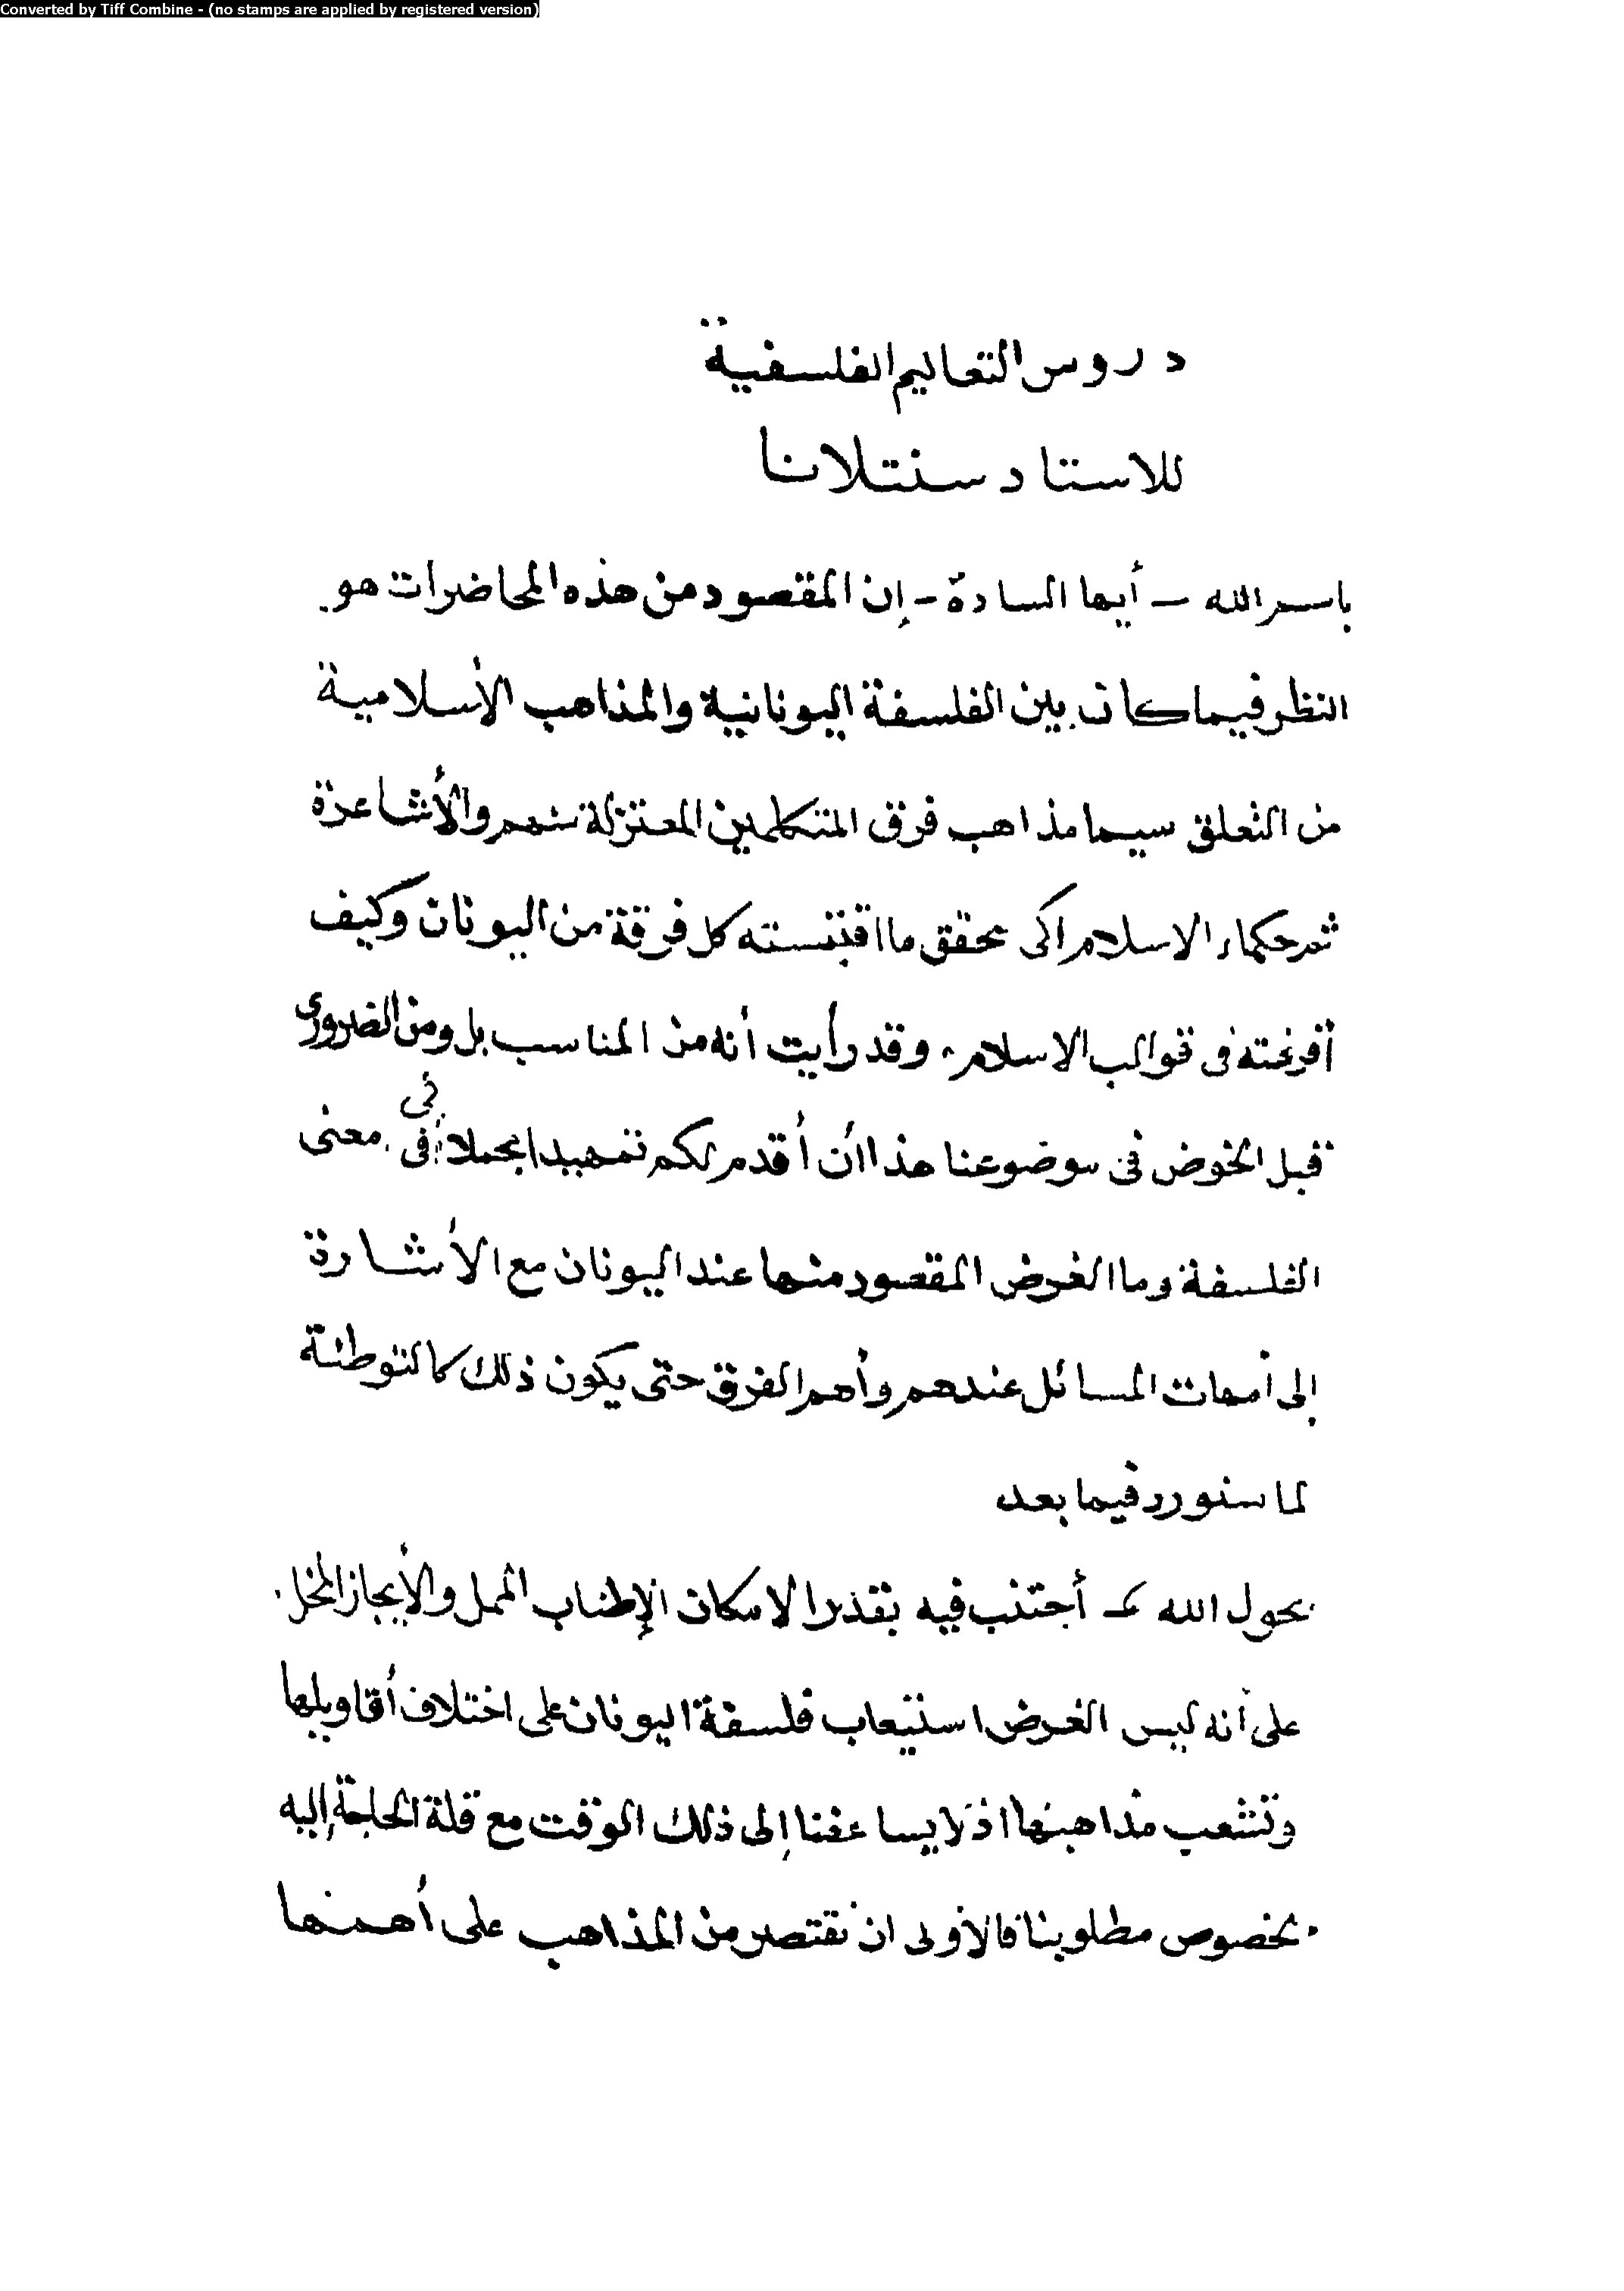 Converted by Tiff Combine - (no stamps are applied by registered version)
دروس التعاليم الفلسفية
للاستاد سنتلانا
باسم الله – أيها السادة – إن المقصود من هذه المحاضرات هو
النظر فيما كان بين الفلسفة اليونانية والمذاهب الأسلامية
من التعلق سيما مذاهب فرق المتكلمين المعتزلة منهم والأشاعرة
ثم حكماء الاسلام لكى نحقق ما اقتبسته كل فرقة من اليونان وكيف
أفرغته فى قوالب الاسلام، وقد رأيت أنه من المناسب بل ومن الضرورى
قبل الخوض فى موضوعنا هذا أن أقدم لكم تمهيدا مجملا فى معنى
الفلسفة وما الغرض المقصود منها عند اليونان مع الأشارة
إلى أمهات المسائل عندهم وأهم الفرق حتى يكون ذلك كالتوطئة
لما سنورد فيما بعد
بحول الله أجتنب فيه بقدر الامكان الإطناب الممل والأيجاز المخل
على أنه ليس الغرض استيعاب فلسفة اليونان على اختلاف أقاويلها
وتشعب مذاهبها اذ لا يساعفنا إلى ذلك الوقت مع قلة الحاجة إليه
بخصوص مطلوبنا فالأولى ان نقتصر من المذاهب على أهمها